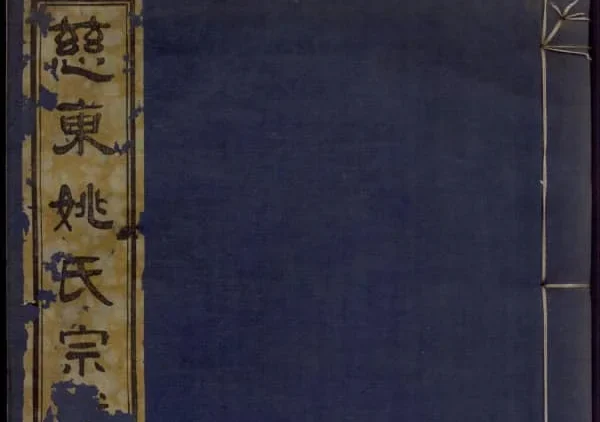 慈東姚氏宗